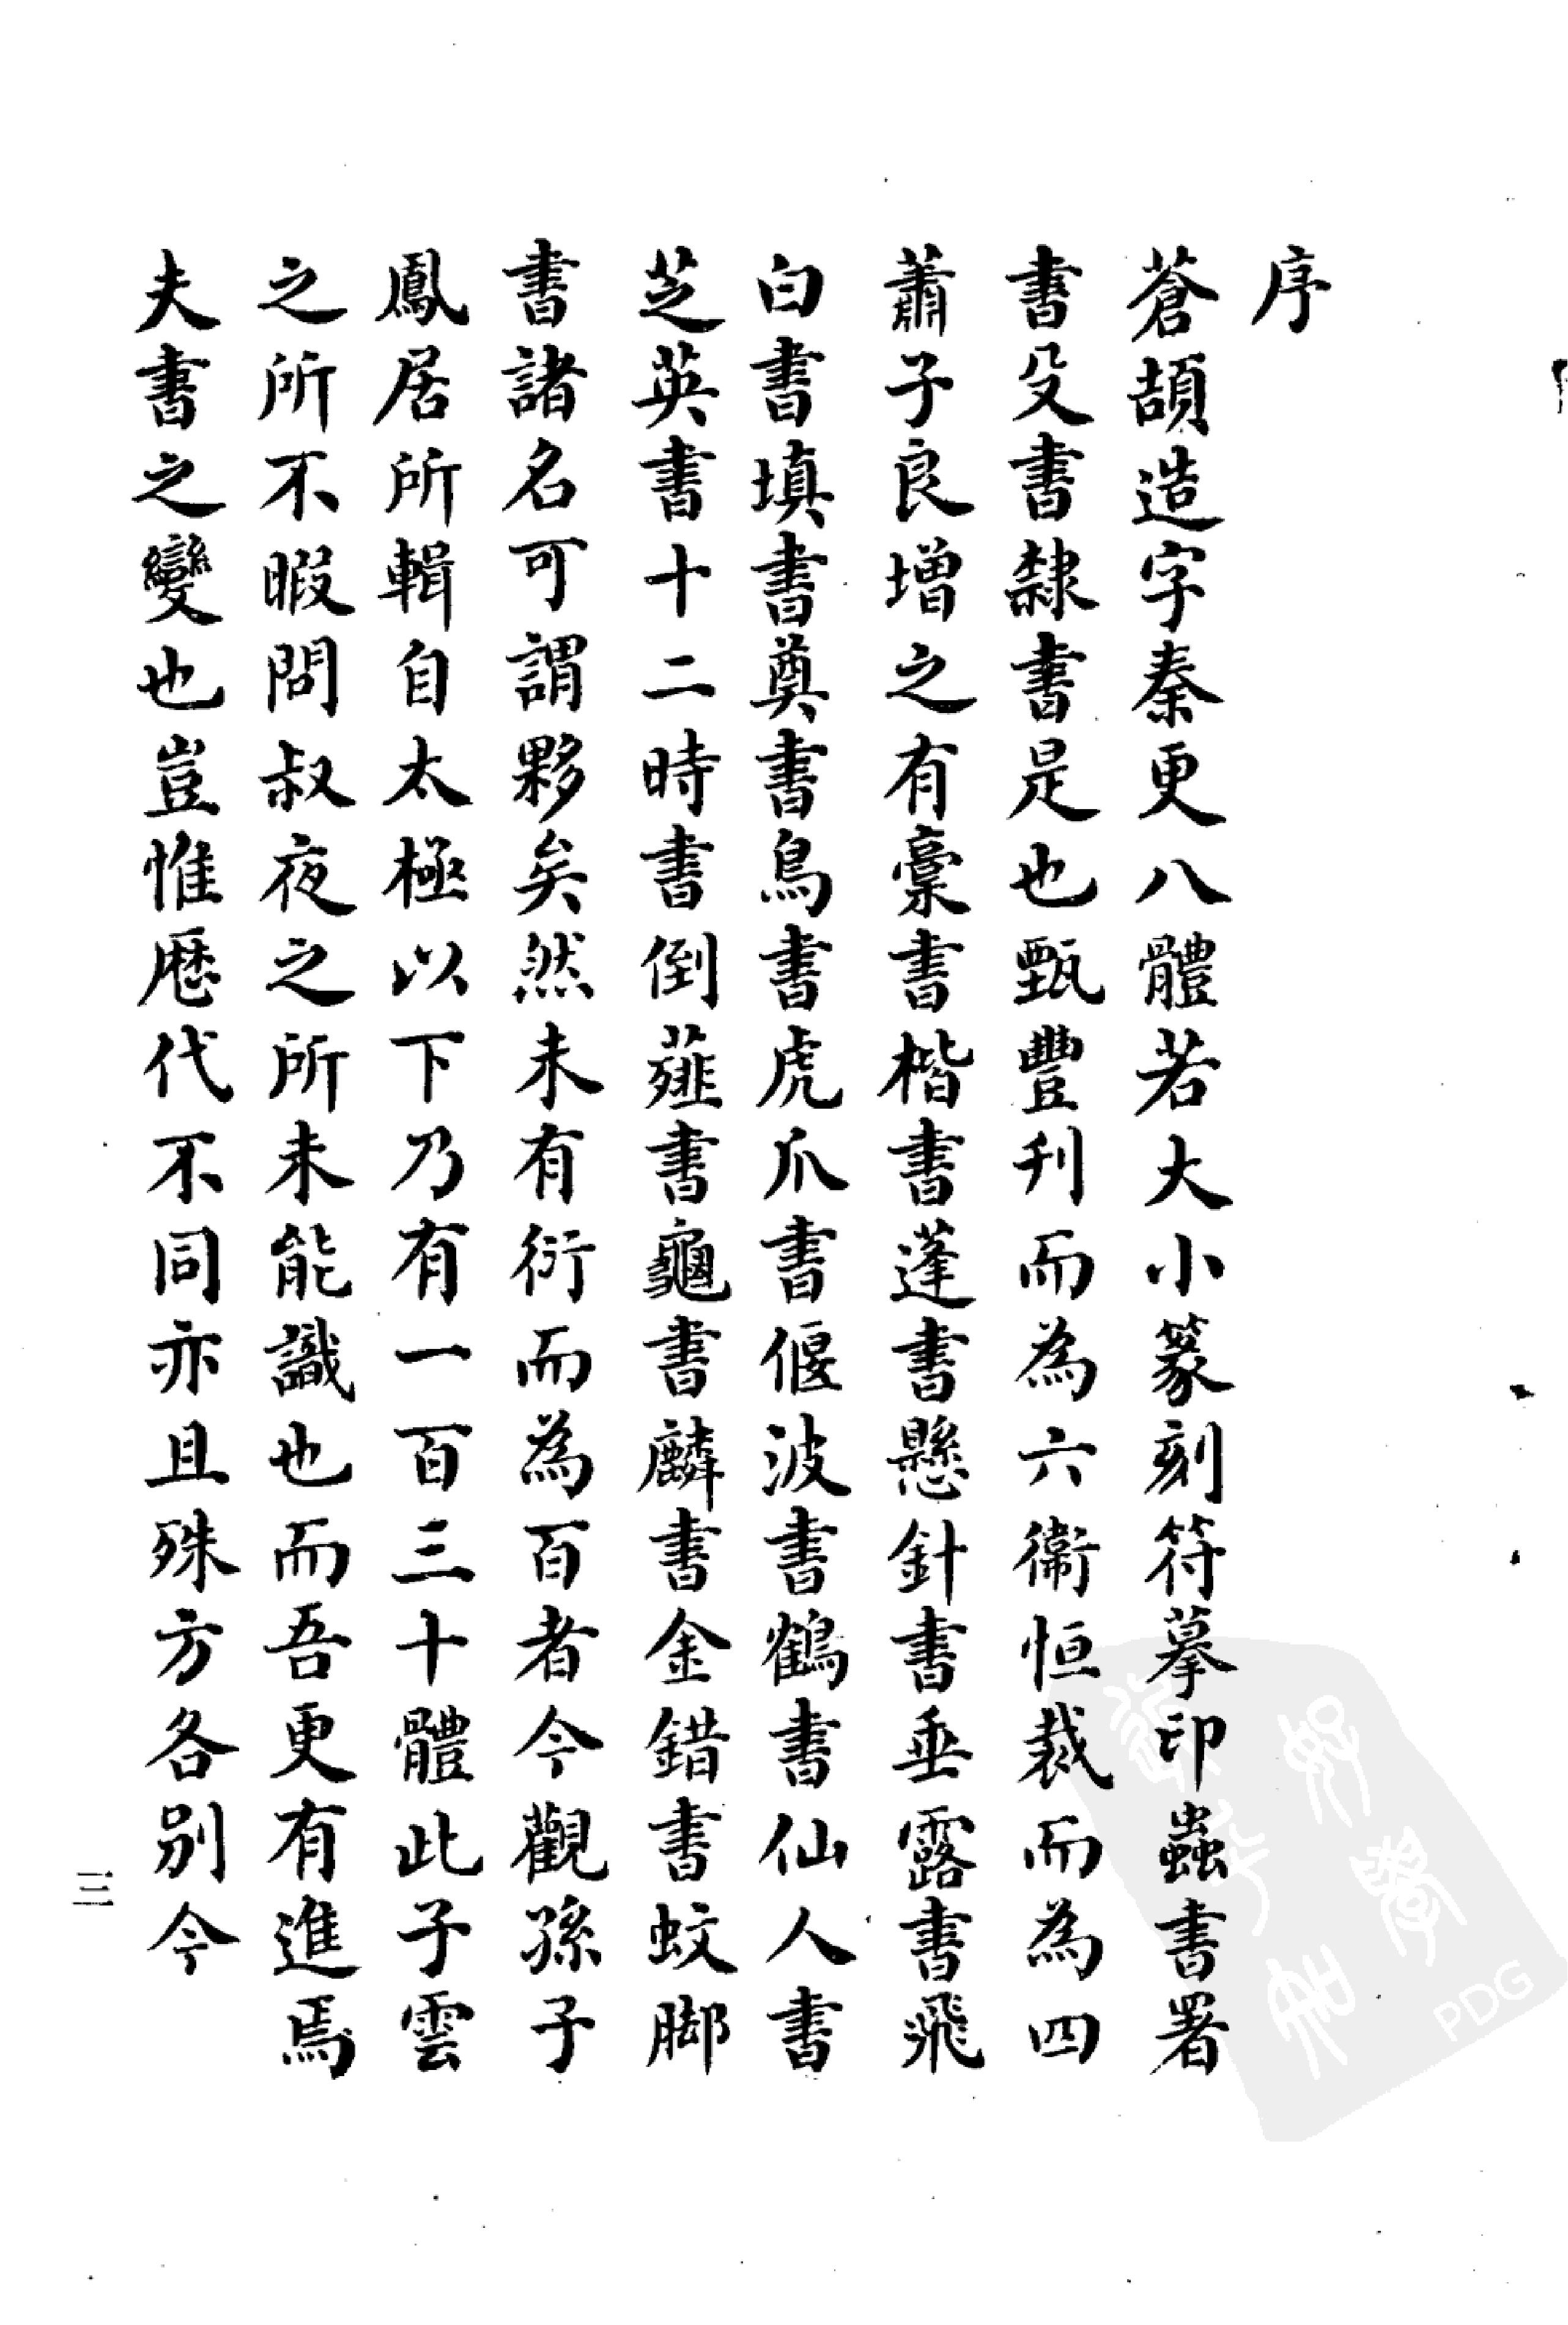 序
蒼頡造字秦更八體若大小篆刻符摹印蟲書署
書殳書隸書是也甄豐刋而為六衞恒裁而為四
蕭子良增之有稾書楷書蓬書懸針書垂露書飛
白書填書奠書鳥書虎爪書偃波書鶴書仙人書
芝英書十二時書倒薤書龜書麟書金錯書蚊脚
書諸名可謂夥矣然未有衍而為百者今觀孫子
鳳居所輯自太極以下乃有一百三十體此子雲
之所不暇問叔夜之所未能識也而吾更有進焉
夫書之變也豈惟歷代不同亦且殊方各别今
三
PDG